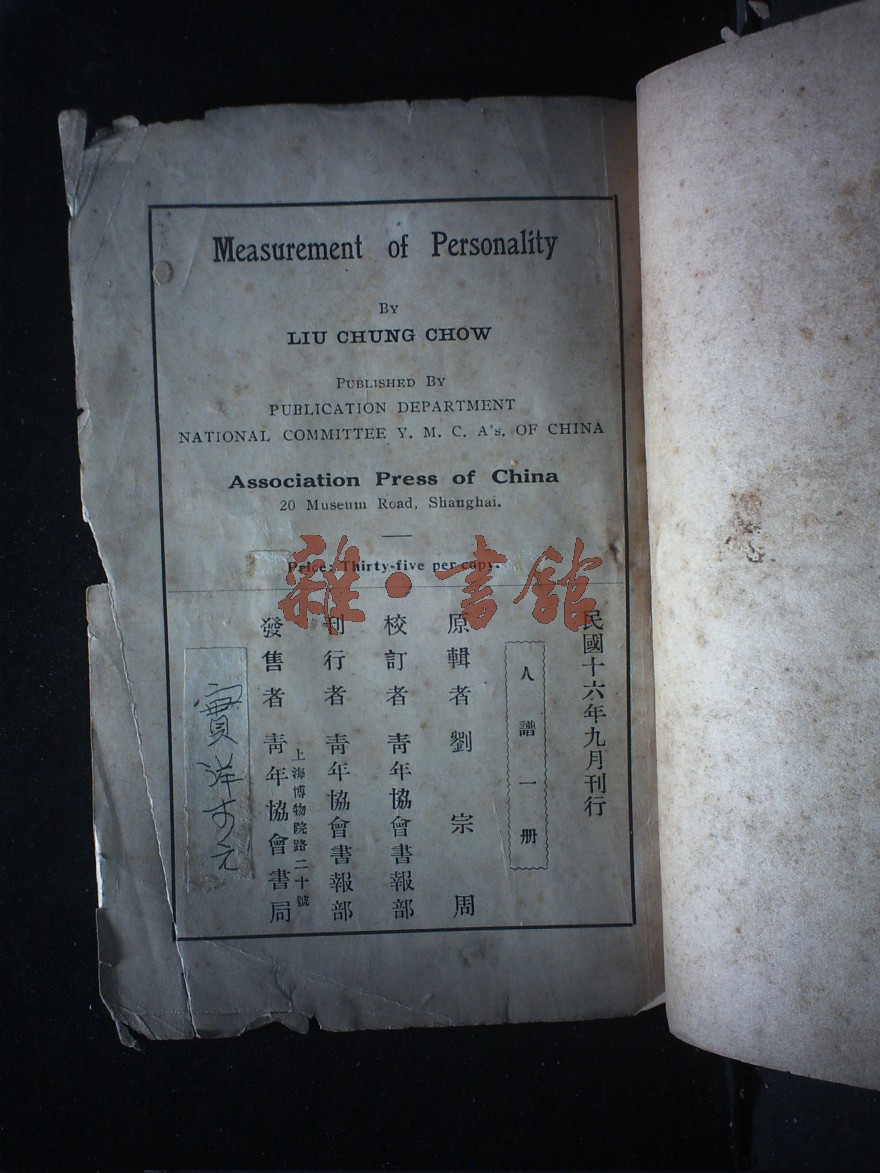 Measurement of Personality
BY
LIU CHUNG CHOW
PUBLISHED BY
PUBLICATION DEPARTMENT
NATIONAL COMMITTEE Y. M. C. A's. OF CHINA
Association Press of China
20 Museum Road, Shanghai.
Price: Thirty-five per copy.
雜·書館
民國十六年九月刊行
人譜一册
原輯者 劉宗周
校訂者 青年協會書報部
刊行者 青年協會書報部
上海博物院路二十號
發售者 青年協會書局
實洋
元